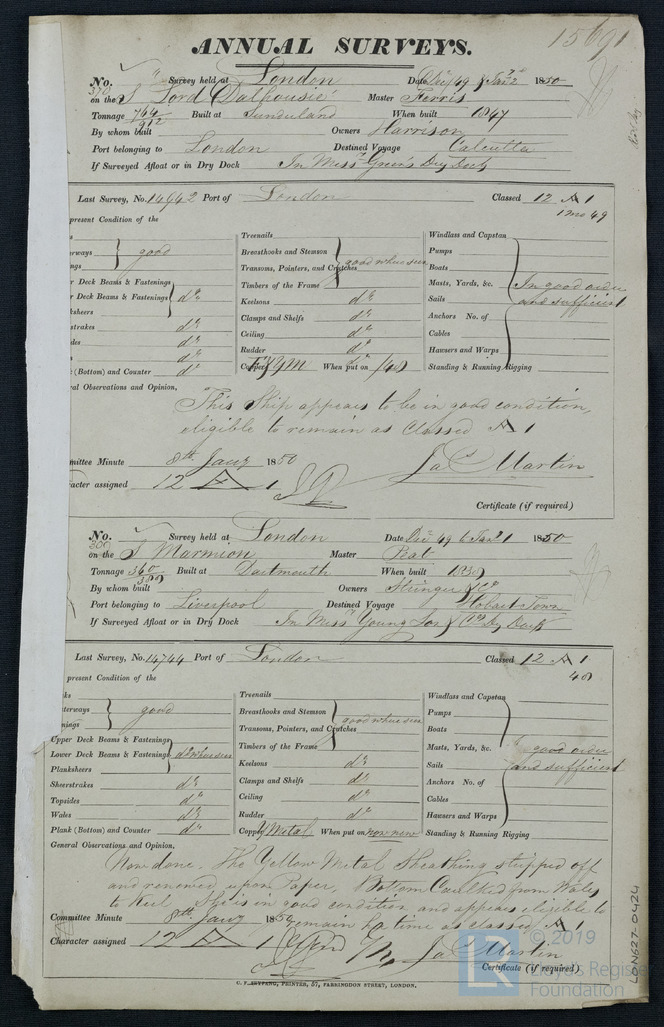 15691
ANNUAL SURVEYS.
No. 370 Survey held at London Date Dec 49 & Jan 2 1850
on the S Lord Dalhousie Master Ferris
Tonnage 764/912 Built at Sunderland When built 1847
By whom built Owners Harrison
Port belonging to London Destined Voyage Calcutta
If Surveyed Afloat or in Dry Dock In Messrs Green's Dry Dock
Last Survey, No. 14942 Port of London Classed 12 A 1
1 mo 49
present Condition of the
Treenails
Windlass and Capstan
Breasthooks and Stemson
Pumps
erways good
Transoms, Pointers, and Crutches good where seen
Boats
ngs
Timbers of the Frame
Masts, Yards, &c. In good order
r Deck Beams & Fastenings
Keelsons do
Sails and sufficient
r Deck Beams & Fastenings do
Clamps and Shelfs do
Anchors No. of
ksheers
Ceiling do
Cables
strakes do
Rudder do
Hawsers and Warps
des do
Copper When put on
Standing & Running Rigging
do
k (Bottom) and Counter do
ral Observations and Opinion,
This Ship appears to be in good condition,
eligible to remain as Classed A 1
mmittee Minute 8th Jany 1850 Ja C Martin
racter assigned 12 A 1
Certificate (if required)
No. 300 Survey held at London Date Dec 49 & Jan 1 1850
on the S Marmion Master Peat
Tonnage 360/389 Built at Dartmouth When built 1839
By whom built Owners Stringer & Co
Port belonging to Liverpool Destined Voyage Hobart Town
If Surveyed Afloat or in Dry Dock In Messrs Young Son & Co Dry Dock
Last Survey, No. 14744 Port of London Classed 12 A 1
49
present Condition of the
ks
Treenails
Windlass and Capstan
terways good
Breasthooks and Stemson
Pumps
nings
Transoms, Pointers, and Crutches good where seen
Boats
Upper Deck Beams & Fastenings
Timbers of the Frame
Masts, Yards, &c. In good order
Lower Deck Beams & Fastenings do where seen
Keelsons do
Sails and sufficient
Planksheers
Clamps and Shelfs do
Anchors No. of
Sheerstrakes do
Ceiling do
Cables
Topsides do
Rudder do
Hawsers and Warps
Wales do
Copper Y Metal When put on now new
Standing & Running Rigging
Plank (Bottom) and Counter do
General Observations and Opinion,
Now done. The Yellow Metal Sheathing stripped off
and renewed upon Paper, Bottom Caulked from Wales
to Keel. She is in good condition and appears eligible to
Committee Minute 8th Jany 1850 remain for time as classed A 1
Character assigned 12 A 1 Ja C Martin
Certificate (if required)
LON627-0424
© 2019
LR Lloyd's Register
Foundation